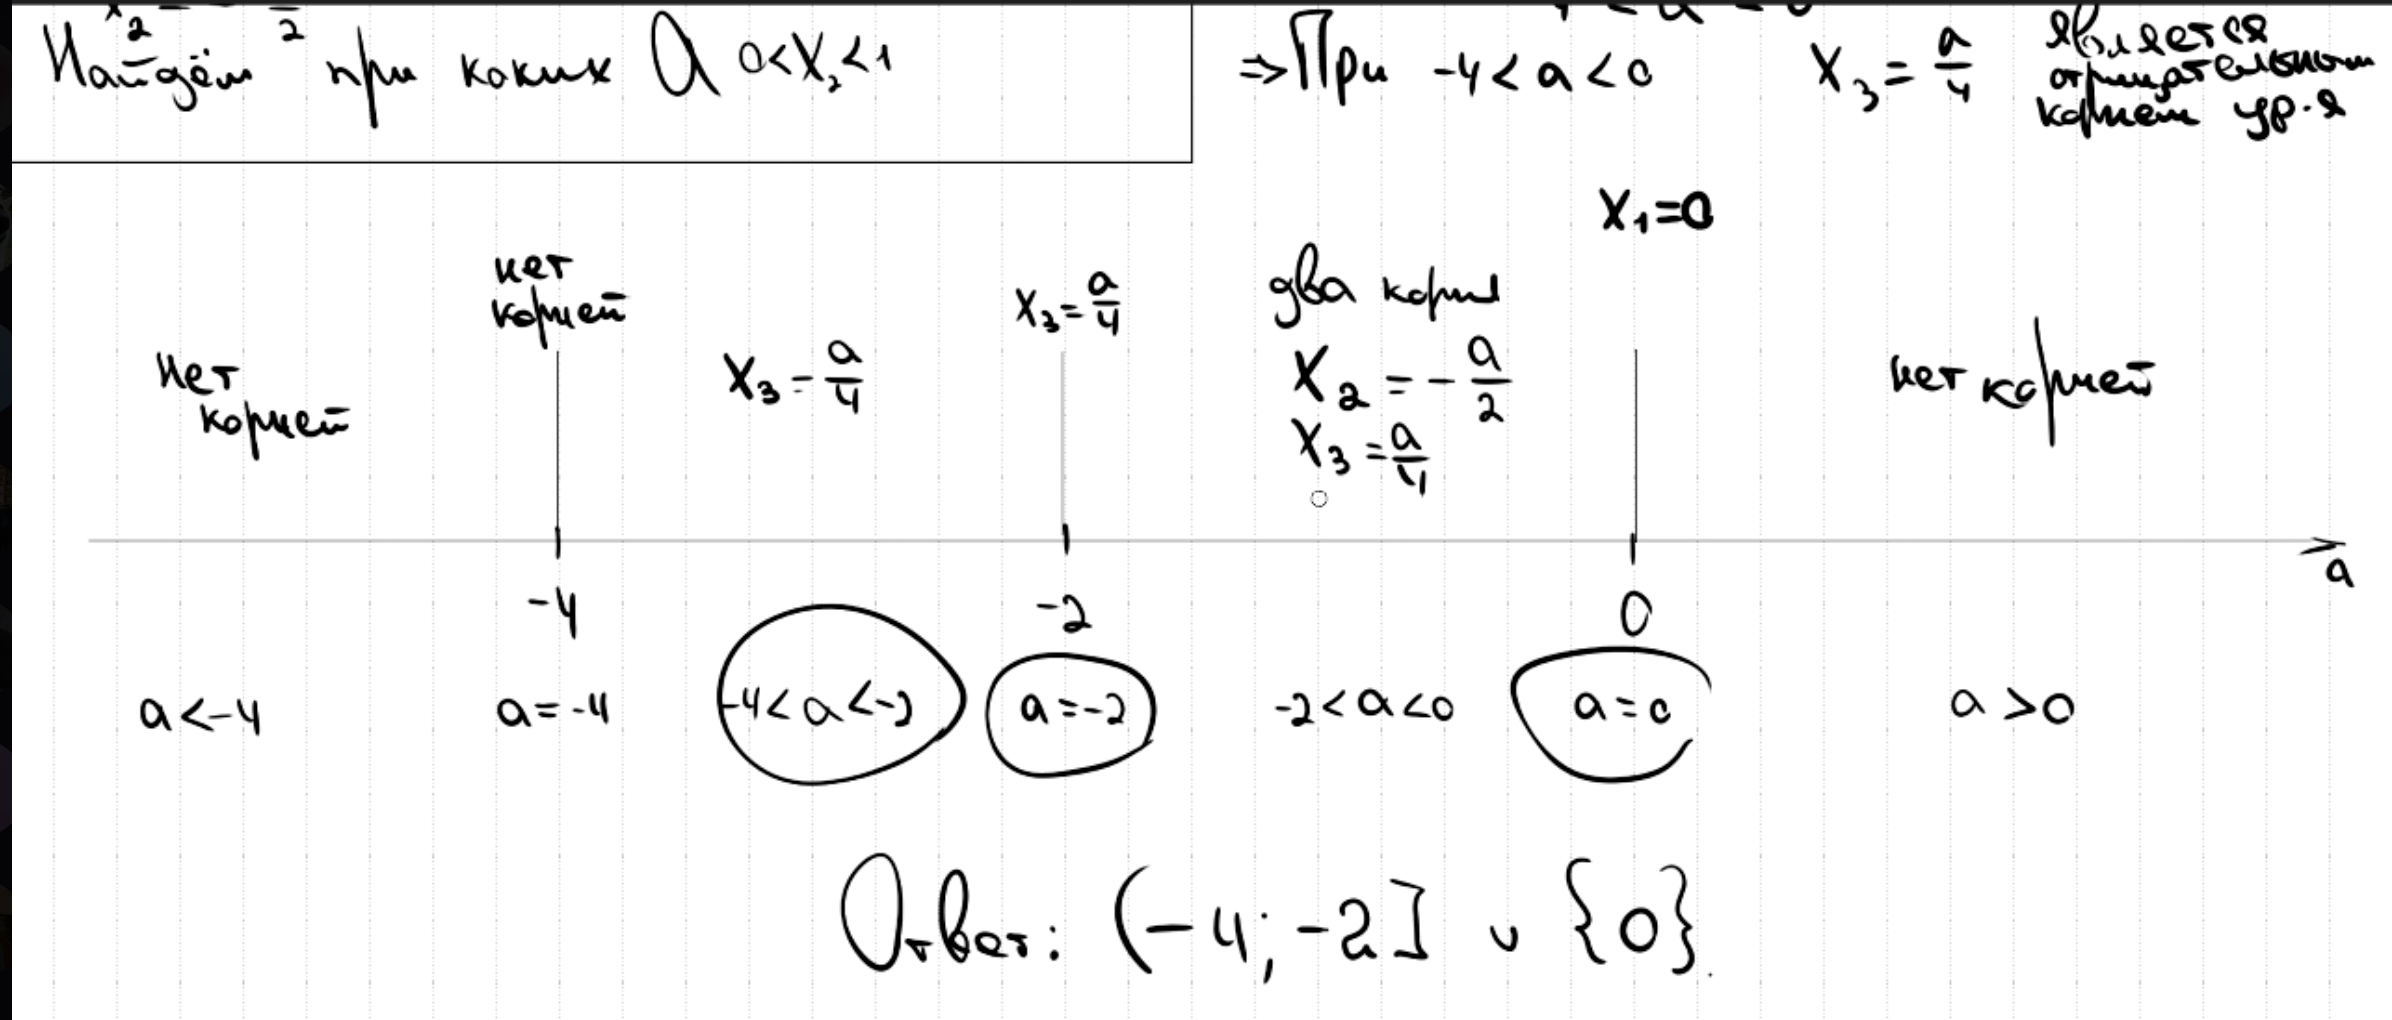 Найдём при каких a 0<X₂<1
⇒При -4<a<0 X₃ = a/4 является
отрицательным
корнем ур-я
X₁=0
нет
корней
X₃=a/4
два корня
нет
корней
X₃ = a/4
X₂ = -a/2
X₃ = a/4
нет корней
a
-4
-2
0
a<-4
a=-4
-4<a<-2
a=-2
-2<a<0
a=0
a>0
Ответ: (-4; -2] ∪ {0}.